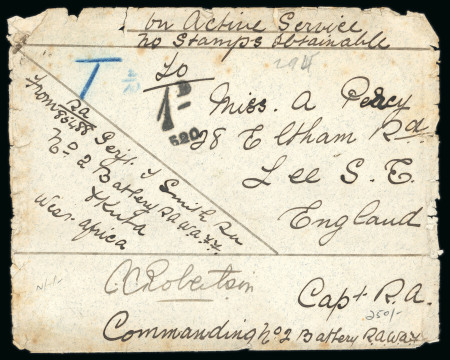 on Active Service
No Stamps Obtainable
T
To
1D
620
Miss. A Percy
28 Eltham Rd
Lee S.E.
England
From RA
86488 Serjt. J Smith RA
No 2 Battery R.A. W.A.F.F.
Kuta
West Africa
N Robertson
Capt R.A.
250/-
Commanding No 2 Battery R.A. W.A.F.F.